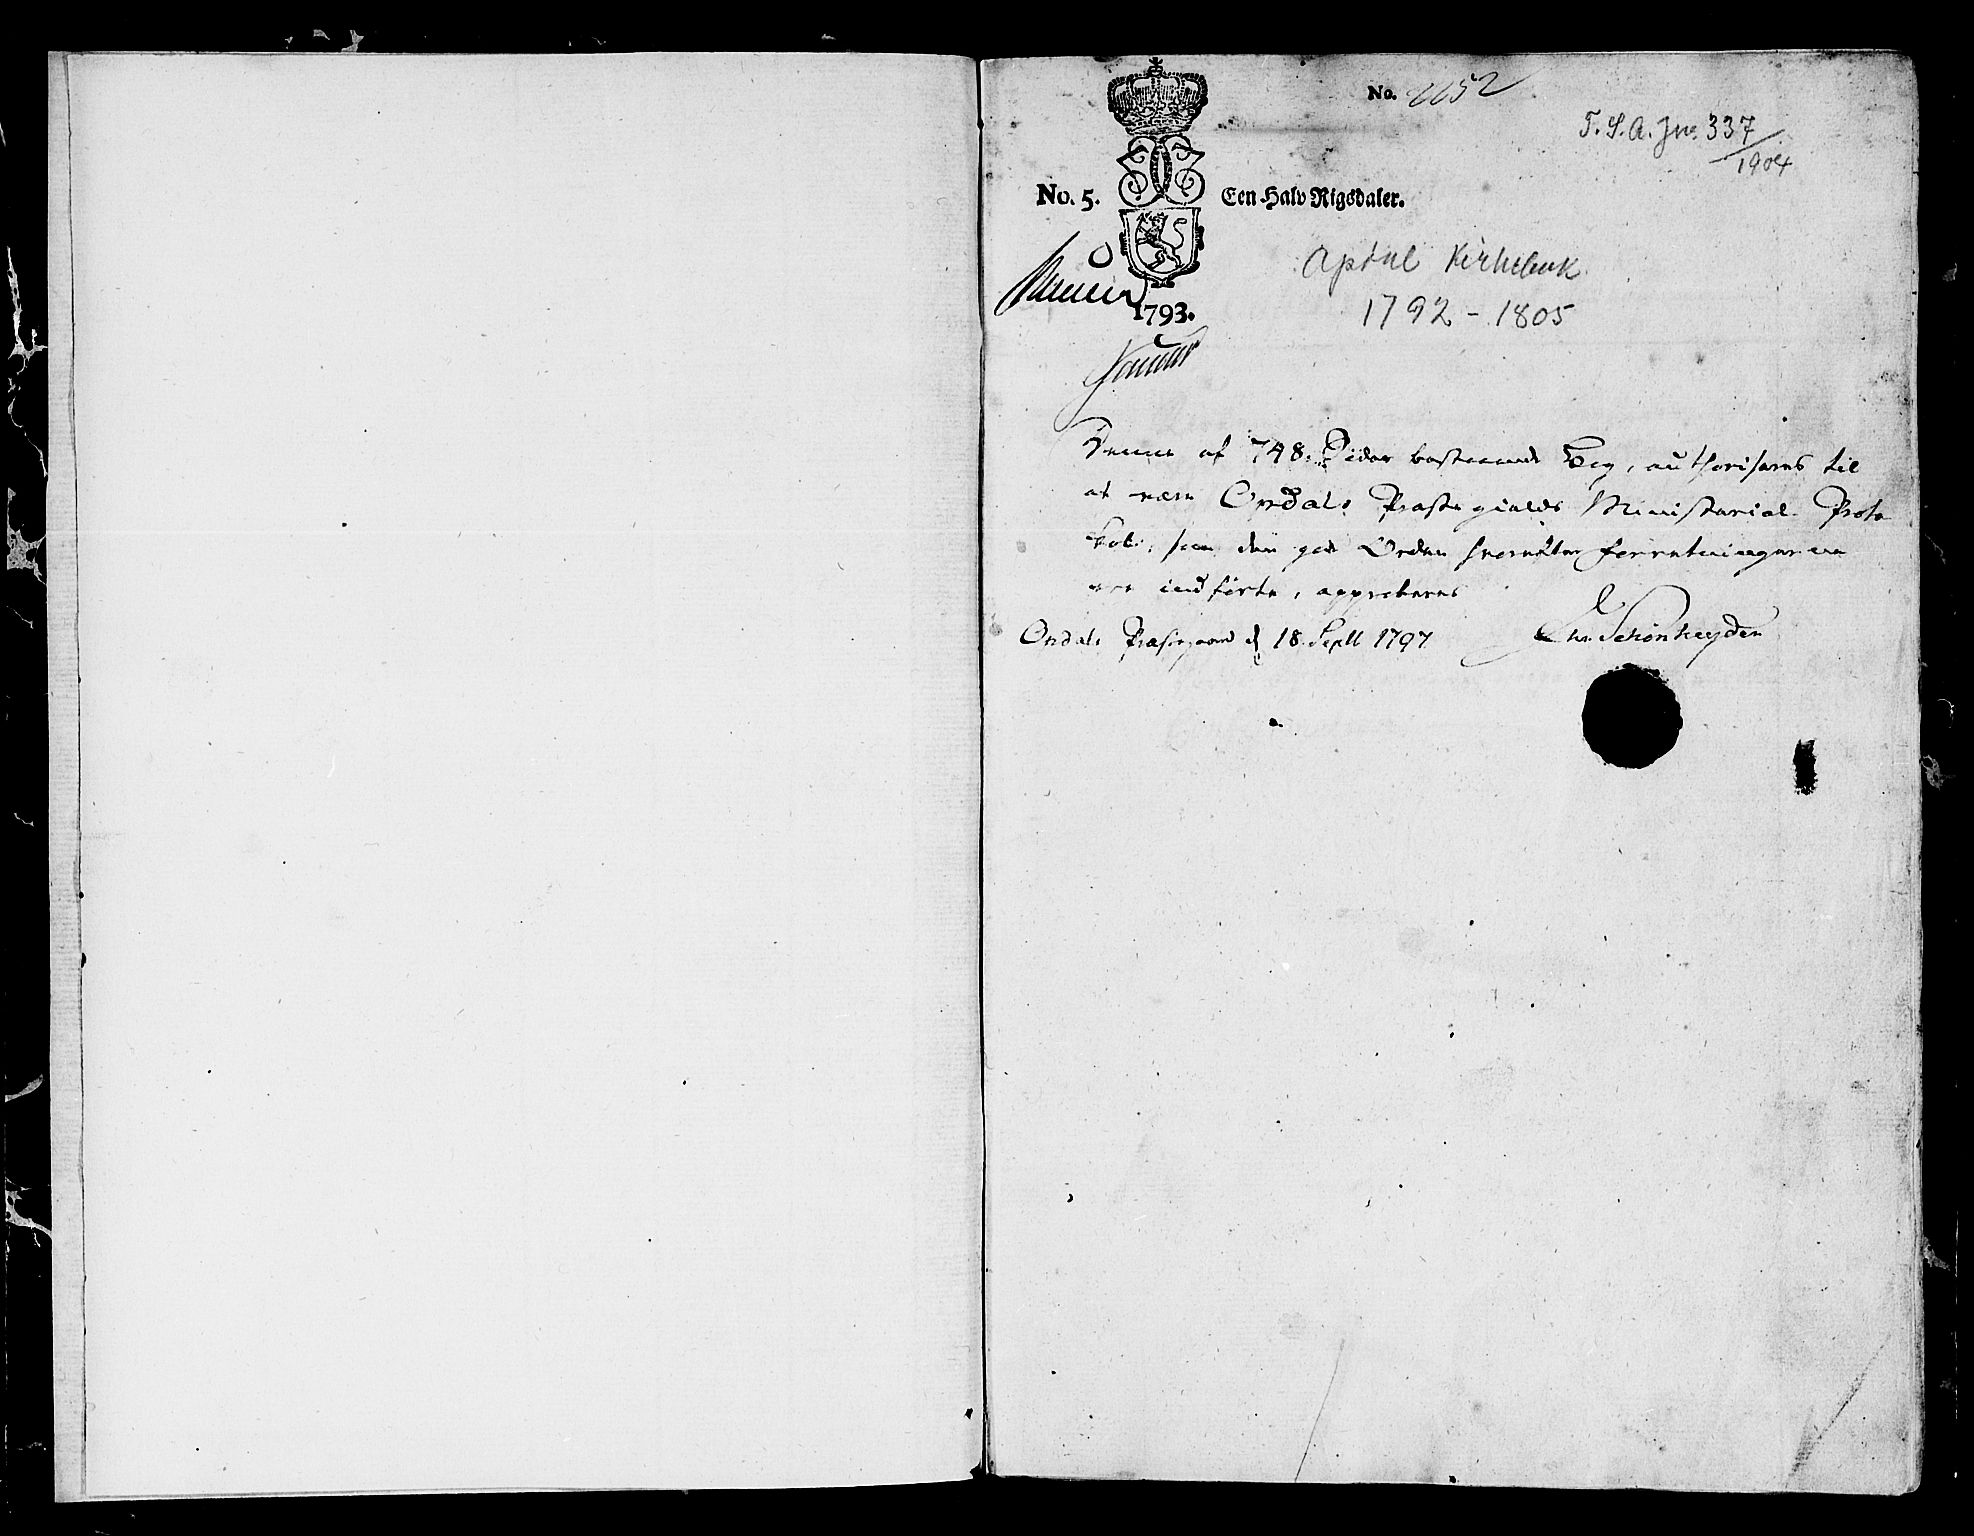 No. 2252
T. S. A. Jno. 337/1904
No. 5. Een Halv Rigsdaler.
Opdal Kirkebok
1792 - 1805
1793.
Denne af 748 Sider bestaaende Bog, authoriseres til
at være Opdals Præstegields Ministerial Proto
koll, som den god Orden hvorefter forretningerne
ere indførte, approberes
Opdals Præstegaard d 18 Septb 1797
Chr. Schönheyder